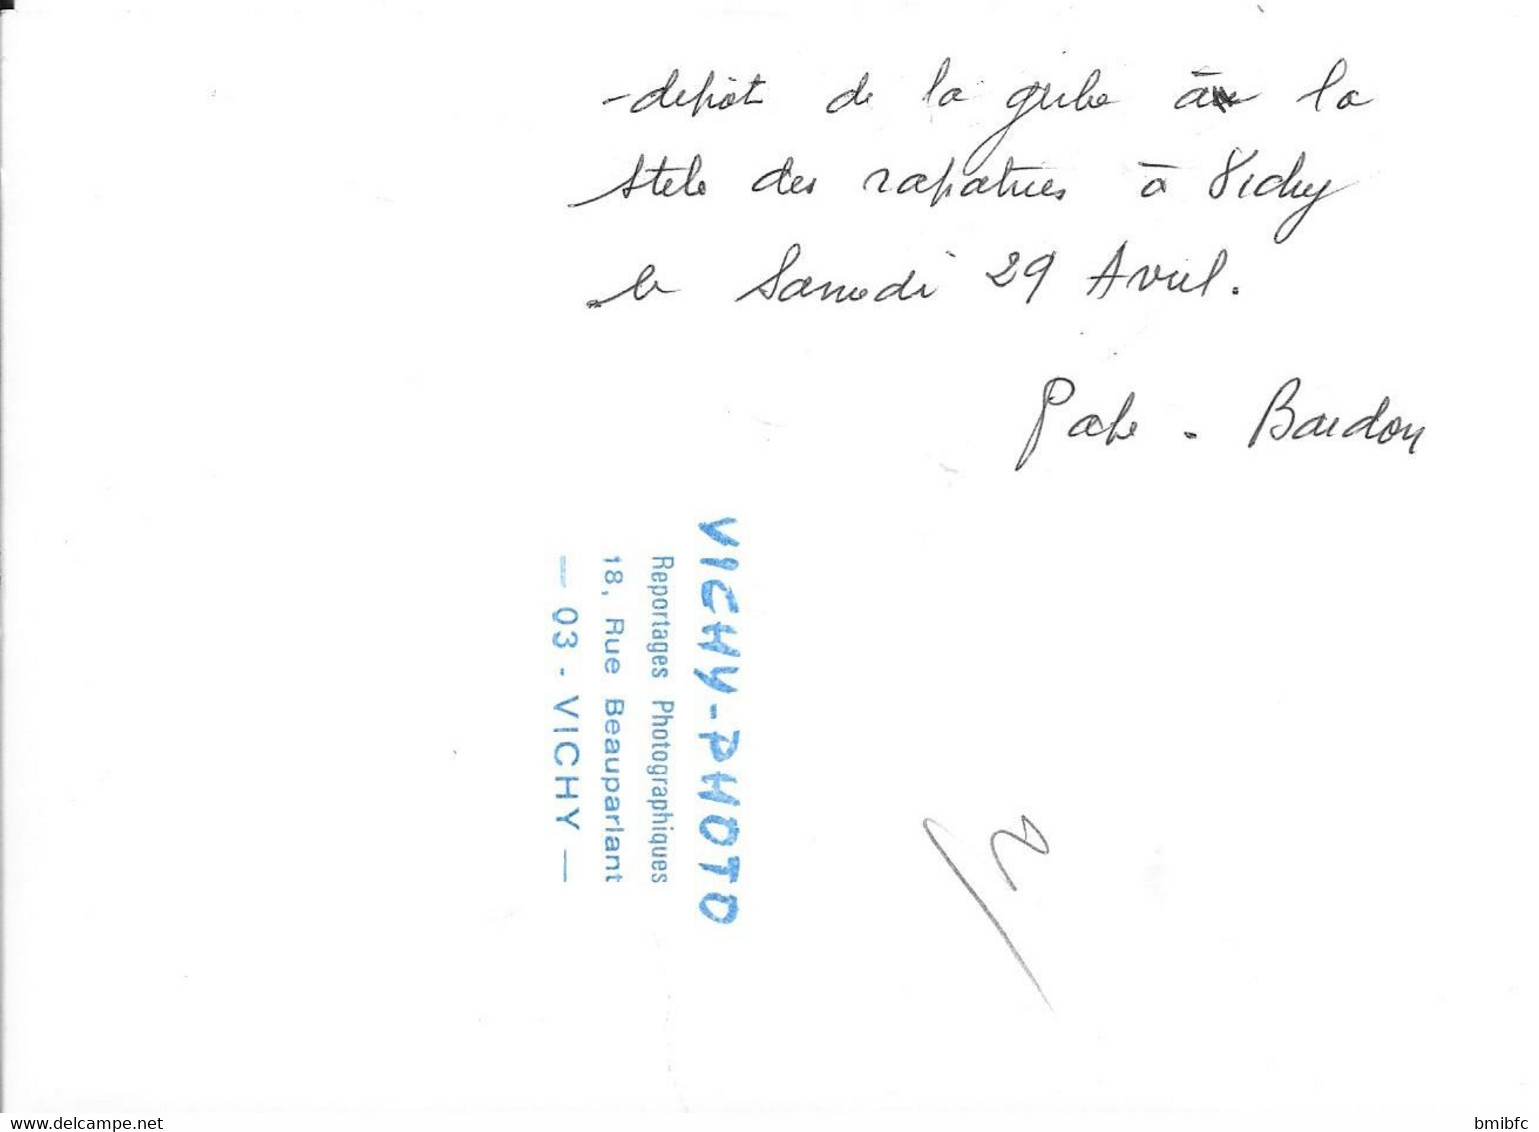 - depôt de la gerbe à la
stele des rapatries à Vichy
le Samedi 29 Avril.
- Bardon
VICHY-PHOTO
Reportages Photographiques
18, Rue Beauparlant
— 03 - VICHY —
www.delcampe.net
bmibfc